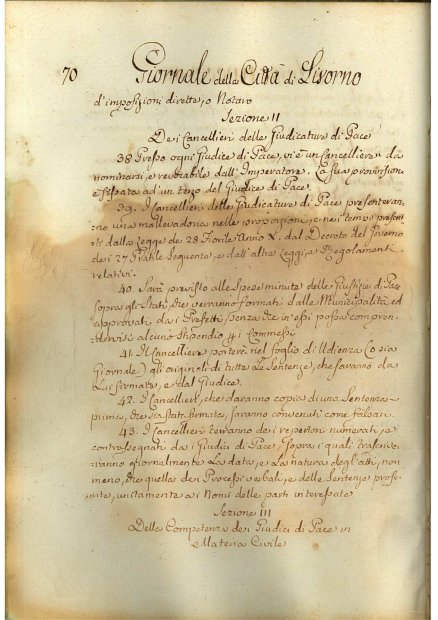 70 Giornale della Città di Livorno
d'imposizioni dirette, o Notaro
Sezione II
Dei Cancellieri delle Giudicature di Pace
38. Presso ogni Giudice di Pace, vi è un Cancelliere da
nominarsi, e revocabile dall'Imperatore. La sua provvisione
è fissata ad un terzo del Giudice di Pace.
39. I Cancellieri delle Giudicature di Pace presenteran,
no una mallevadoria nelle proporzioni, e nei tempi prescrit
ti dalla Legge de' 28 Fiorile Anno X. dal Decreto del Governo
dei 27 Pratile seguente, e dall'altre Leggi, e Regolamenti
relativi.
40. Sarà provvisto alle spese minute delle Giustizie di Pace
sopra gli Stati, che verranno formati dalle Municipalità, ed
approvati dai Prefetti, senza che in essi possa compren,
dervisi alcuno Stipendio di Commessi.
41. Il Cancelliere porterà nel foglio di Udienza (o sia
Giornale) gli originali di tutte le Sentenze, che saranno da
Lui firmate, e dal Giudice.
42. I Cancellieri, che daranno copia di una Sentenza
prima, che sia stata firmata, saranno convenuti come falsari.
43. I Cancellieri terranno dei repertori numerati, e
contrassegnati dai Giudici di Pace, sopra i quali trascrive,
ranno giornalmente la data, e la natura degli atti, non
meno, che quella dei Processi verbali, e delle Sentenze profe,
rite, unitamente ai Nomi delle parti interessate
Sezione III
Della Competenza dei Giudici di Pace in
Materia Civile